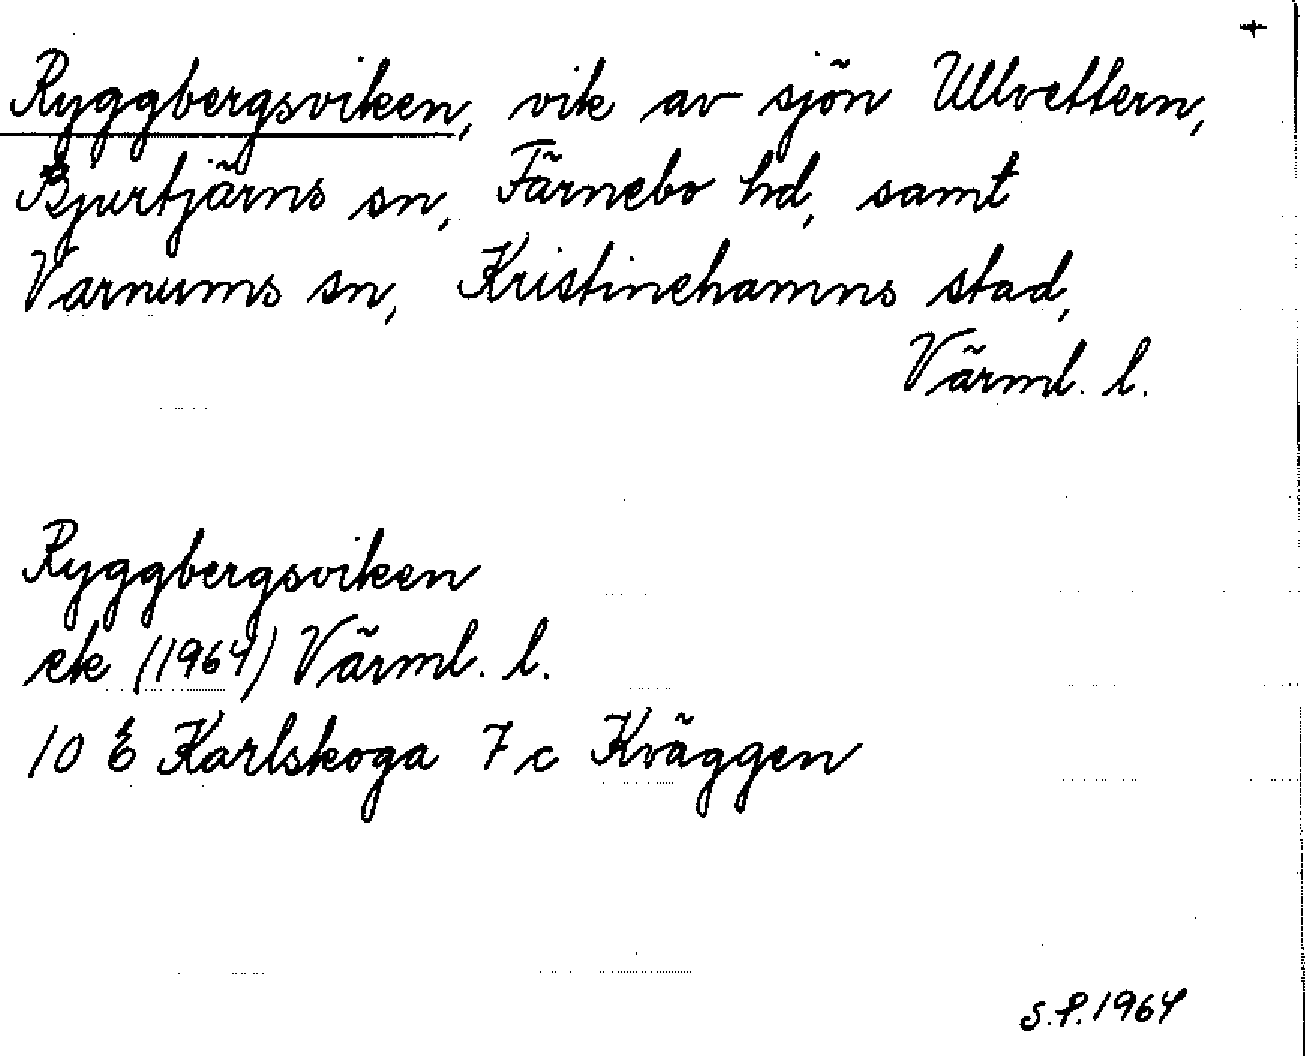 +
Ryggbergsviken, vik av sjön Ullvettern,
Bjurtjärns sn, Färnebo hd, samt
Varnums sn, Kristinehamns stad,
Värml. l.
Ryggbergsviken
ek (1964) Värml. l.
10 E Karlskoga 7 c Kväggen
S.P. 1964